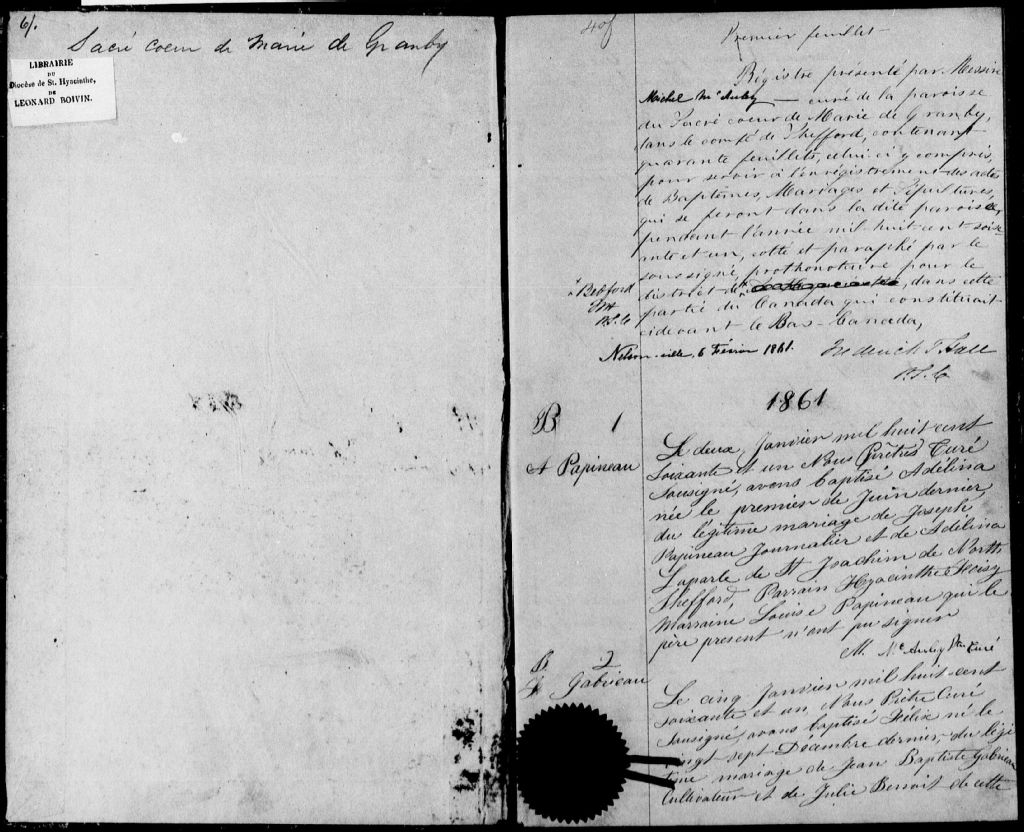 61.
Sacré coeur de Marie de Granby
LIBRAIRIE
DU
Diocèse de St. Hyacinthe,
DE
LEONARD BOIVIN.
40f
Premier feuillet
Régistre présenté par Messire
Michel McAuley — curé de la paroisse
du Sacré coeur de Marie de Granby,
dans le comté de Shefford, contenant
quarante feuillets, celui ci y compris,
pour servir à l'enrégistrement des actes
de Baptêmes, Mariages et Sépultures,
qui se feront dans la dite paroisse,
pendant l'année mil huit cent soix-
ante et un, cotté et paraphé par le
soussigné, prothonotaire pour le
district de, dans cette
partie du Canada qui constituait
cidevant le Bas-Canada,
Bedford
P.S.C
Nelsonville, 6 Février 1861.
Frederick T. Hall
P.S.C
1861
B 1
A Papineau
Le deux Janvier mil huit cent
soixante et un Nous Prêtres Curé
sousigné, avons baptisé Adélina
née le premier de Juin dernier,
du légitime mariage de Joseph
Papineau Journalier et de Adélina
Laparle de St Joachim de North
Shefford, Parrain Hyacinthe
Marraine Louise Papineau qui le
père present n'ont pu signer
M. McAuley Ptre Curé
B 2
F Gabrieau
Le cinq Janvier mil huit cent
soixante et un Nous Prêtre Curé
sousigné, avons baptisé Félix né le
vingt sept Décembre dernier, du légi
time mariage de Jean Baptiste Gabrieau
Cultivateur et de Julie Benoit de cette